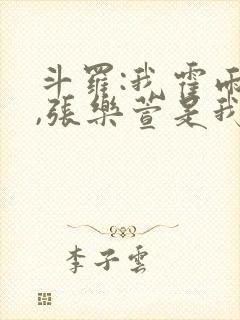 斗羅:我霍雨
,張樂萱是我
李子雲